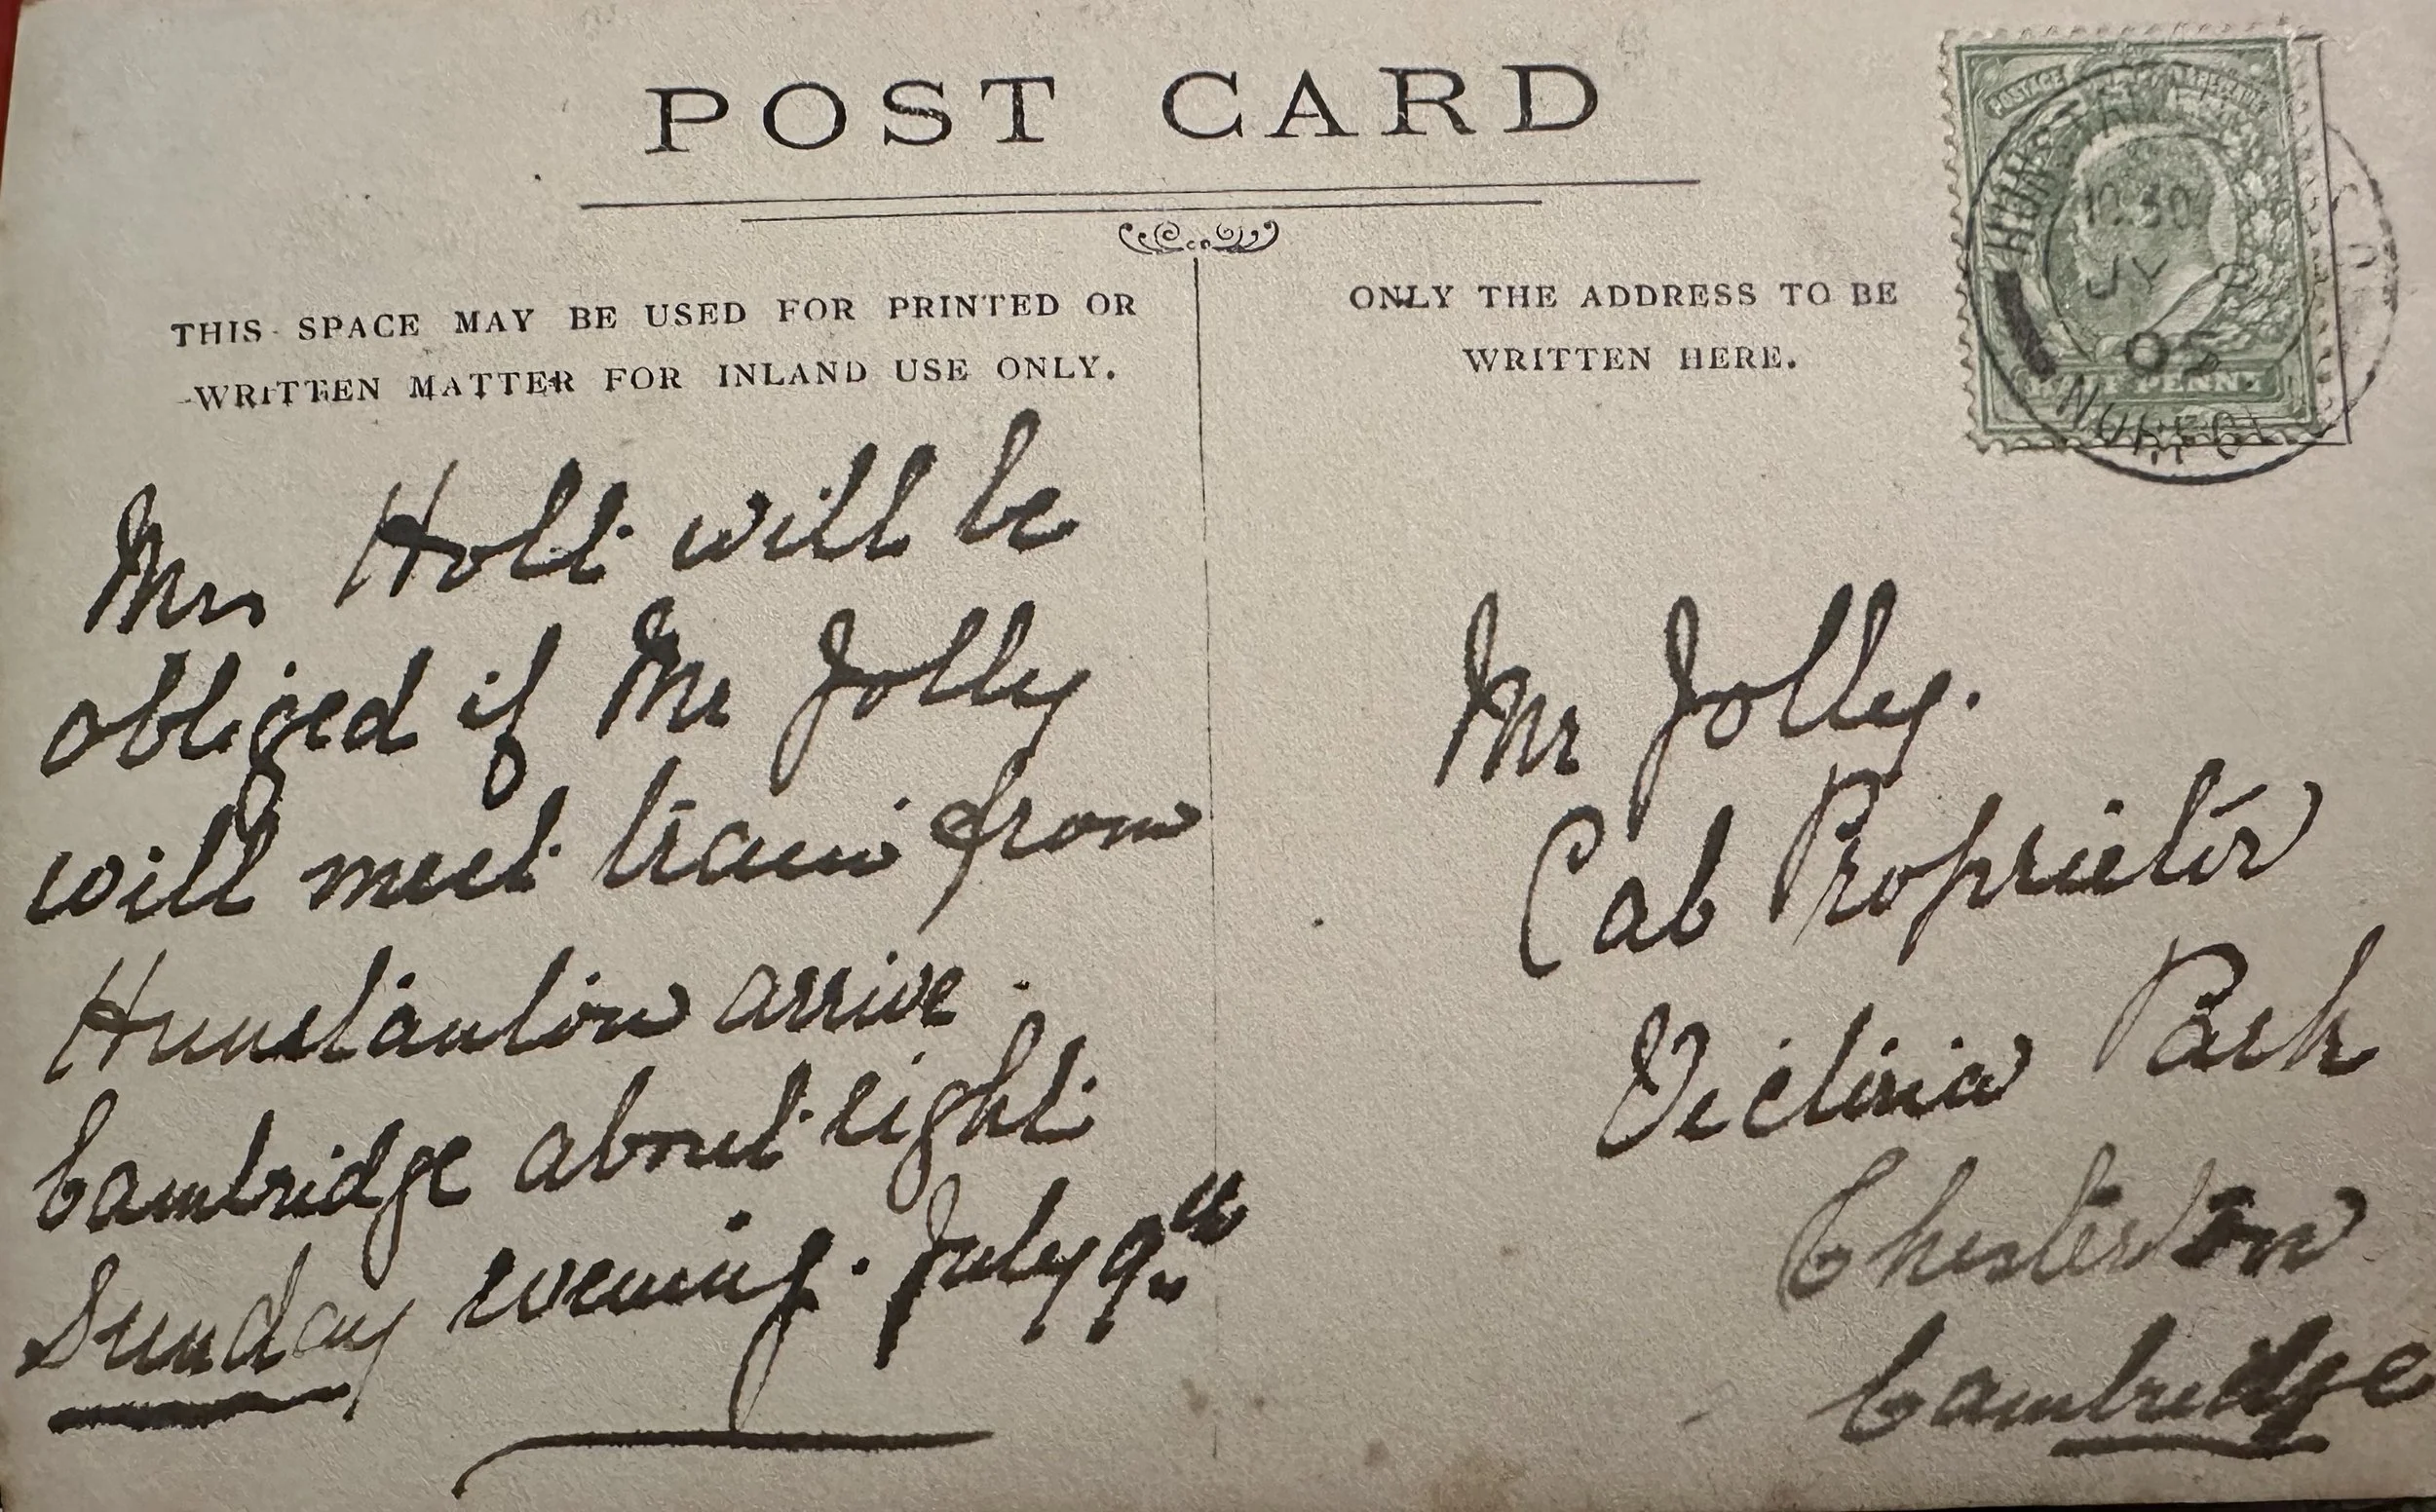 POST CARD
THIS SPACE MAY BE USED FOR PRINTED OR
WRITTEN MATTER FOR INLAND USE ONLY.
Mrs Holt will be
obliged if Mr Jolly
will meet train from
Hunstanton arrive
Cambridge about eight
Sunday evening. July 9th
ONLY THE ADDRESS TO BE
WRITTEN HERE.
Mr Jolly.
Cab Proprietor
Victoria Park
Chesterton
Cambridge
POSTAGE
HALF PENNY
10.30
JY
05